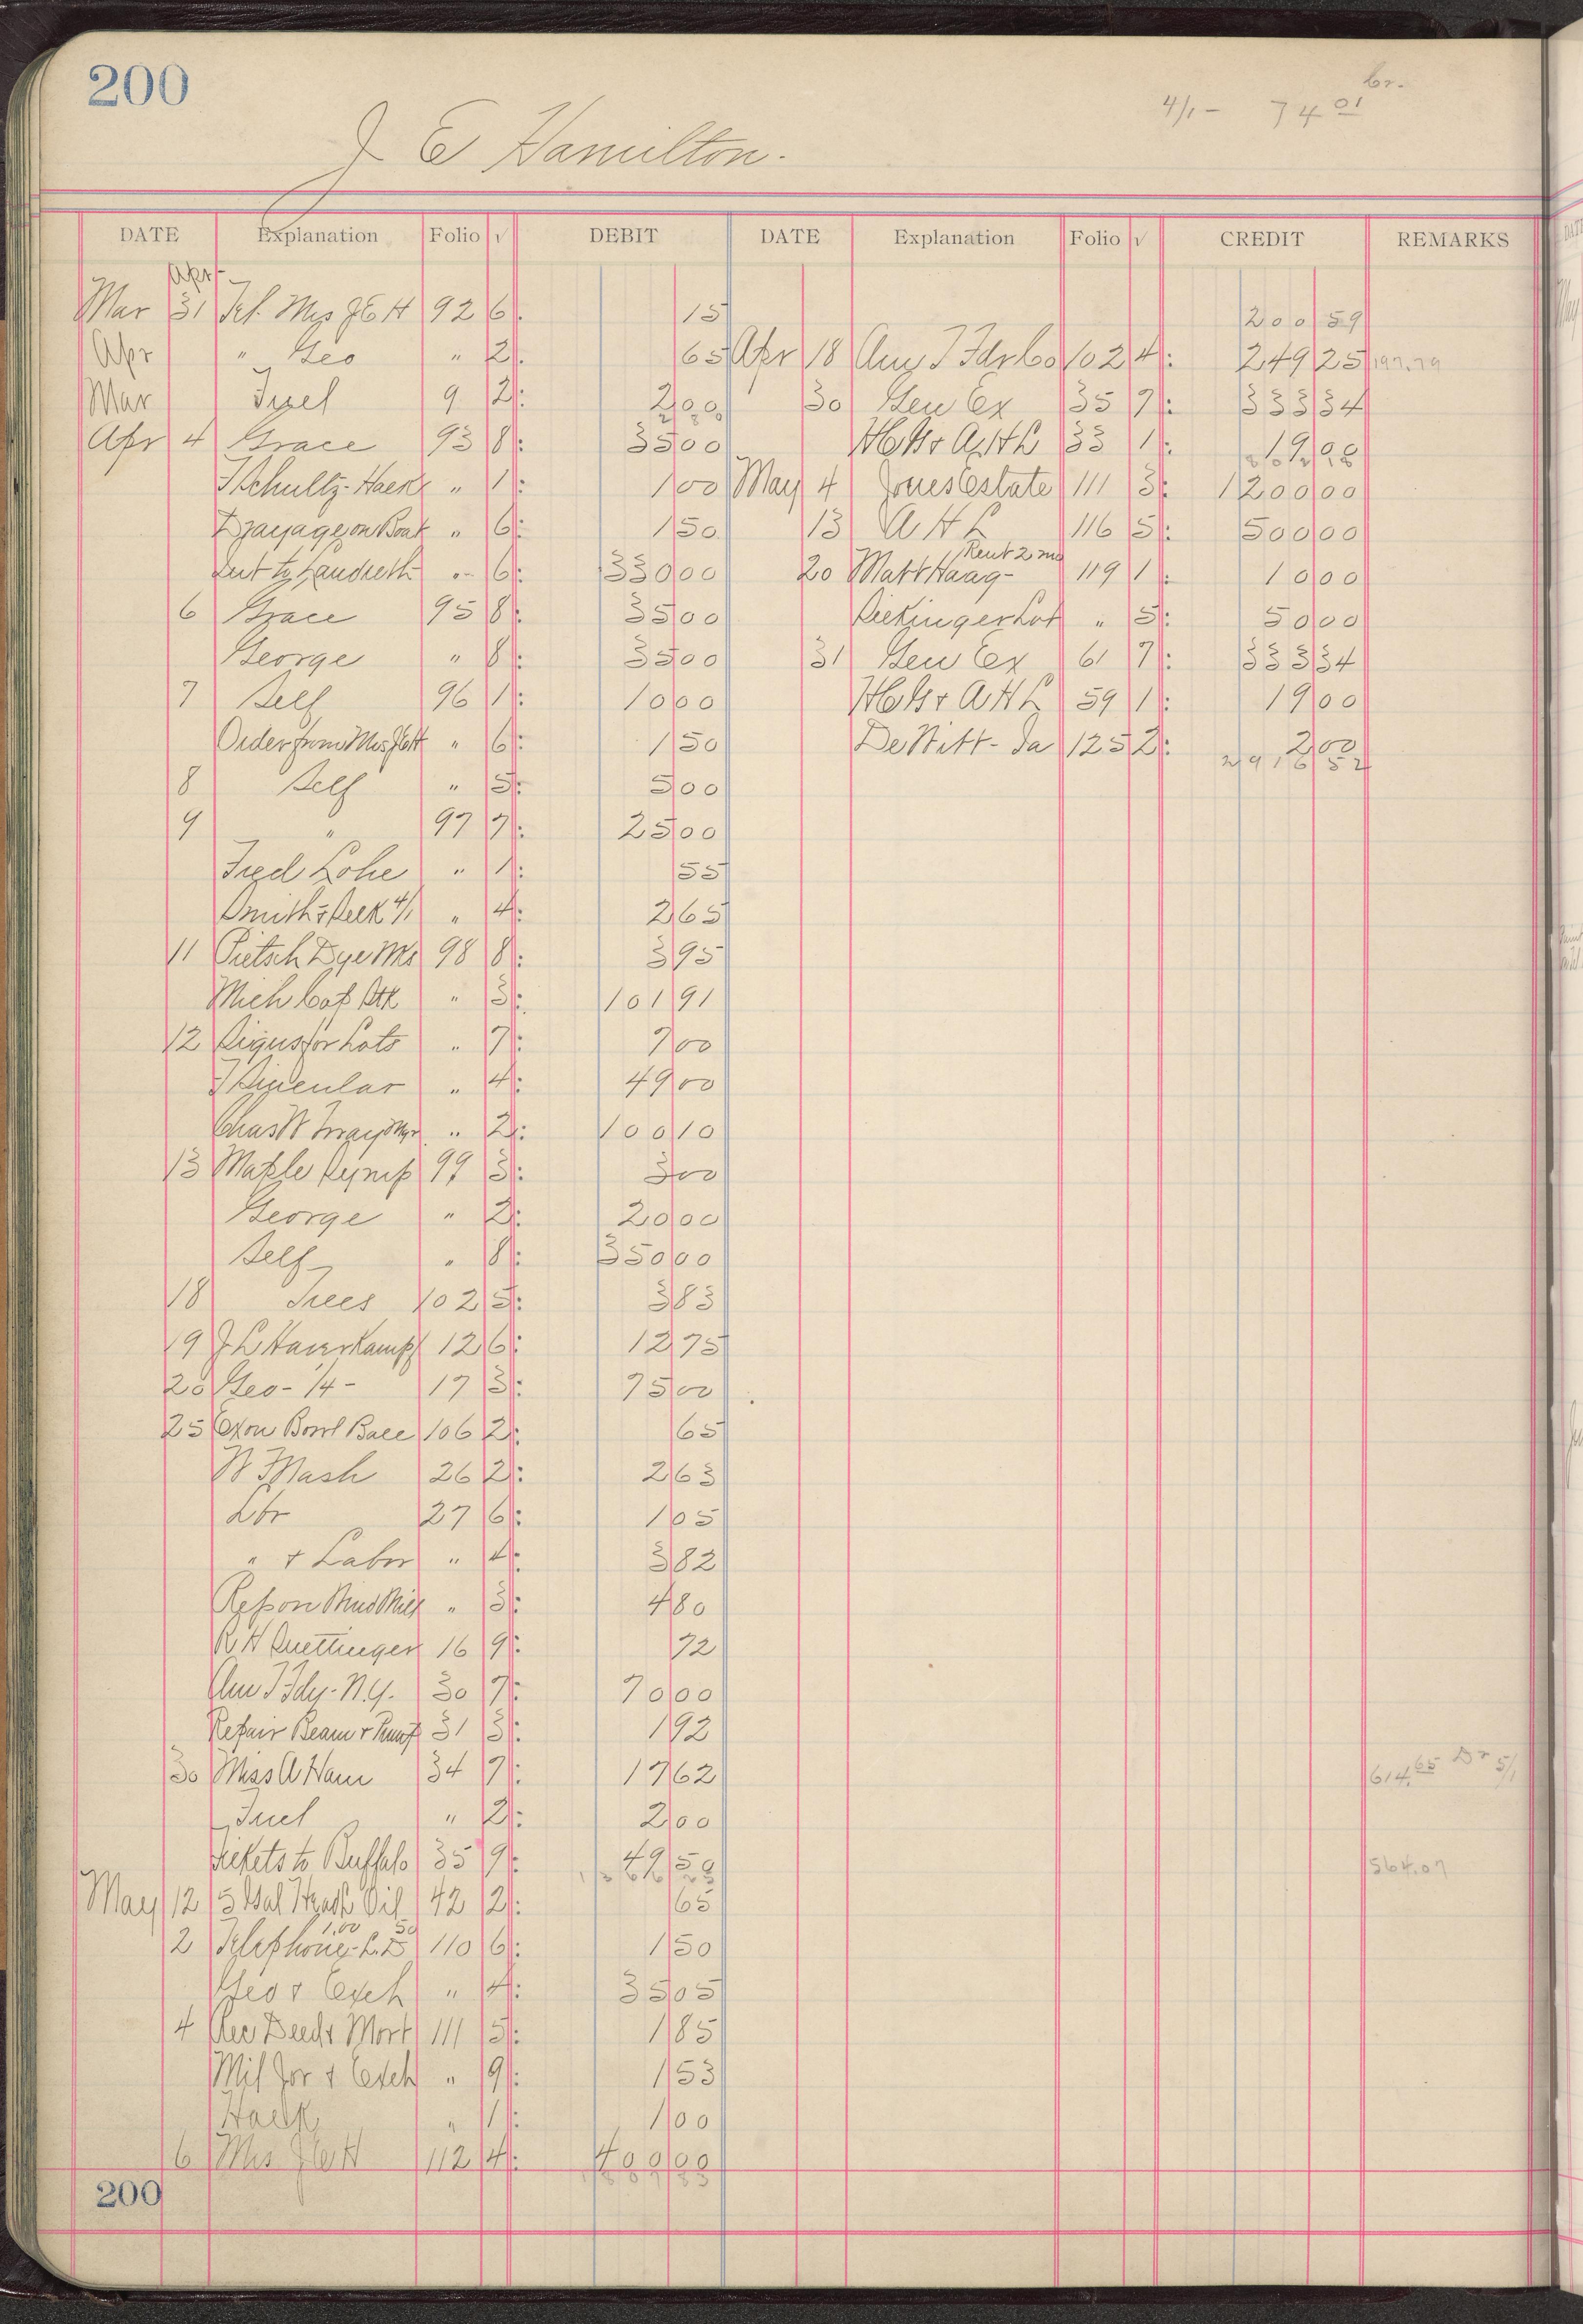 200
Cr.
4/1 - 74 01
J E Hamilton.
DATE Explanation Folio √ DEBIT DATE Explanation Folio √ CREDIT REMARKS
Apr
Mar 31 Tel. Mrs J E H 92 6 15 200 59
Apr " Geo " 2 65 Apr 18 Am T Fdr Co 102 4 249 25 197.79
Mar Fuel 9 2 2 00 30 Gen Ex 35 7 333 34
Apr 4 Grace 93 8 35 00 33 1 19 00
J Schultz - Hack " 1 1 00 May 4 Jones Estate 111 3 1200 00
Drayage on Boat " 6 1 50 13 A H L 116 5 500 00
Rent 2 mo
Int to Landreth " 6 330 00 20 Matt Haag - 119 1 10 00
6 Grace 95 8 35 00 Lot " 5 50 00
George " 8 35 00 31 Gen Ex 61 7 333 34
7 Self 96 1 10 00 59 1 19 00
Order from Mrs J E H " 6 1 50 De Witt - Ia 125 2 2 00
2916 52
8 Self " 5 5 00
9 " 97 7 25 00
Fred Lohe " 1 55
4/1 " 4 2 65
11 Pietsch Dye Wks 98 8 3 95
Mich Cat Stk " 3 101 91
12 Signs for Lots " 7 7 00
" 4 49 00
Chas W Gray Mgr " 2 100 10
13 Maple Syrup 99 3 3 00
George " 2 20 00
Self " 8 350 00
18 Trees 102 5 3 83
19 J L Haverkampf 12 6 12 75
20 Geo - 14 - 17 3 75 00
25 Ex on Bowl Ball 106 2 65
W Mash 26 2 2 63
Lbr 27 6 1 05
" + Labor " 4 3 82
Rep on Wind Mill " 3 4 80
R H Suettinger 16 9 72
Am T Fdy - N.Y. 30 7 70 00
Repair Beam + Pump 31 3 1 92
30 Miss A Ham 34 7 17 62 614.65 Dr 5/1
Fuel " 2 2 00
Tickets to Buffalo 35 9 49 50 564.07
May 12 5 Gal Head Oil 42 2 65
1.00 50
2 Telephone - L.D 110 6 1 50
Geo + Exch " 4 35 05
4 Rec Deed + Mort 111 5 1 85
Mil Jor + Exch " 9 1 53
Hack " 1 1 00
6 Mrs J E H 112 4 400 00
200